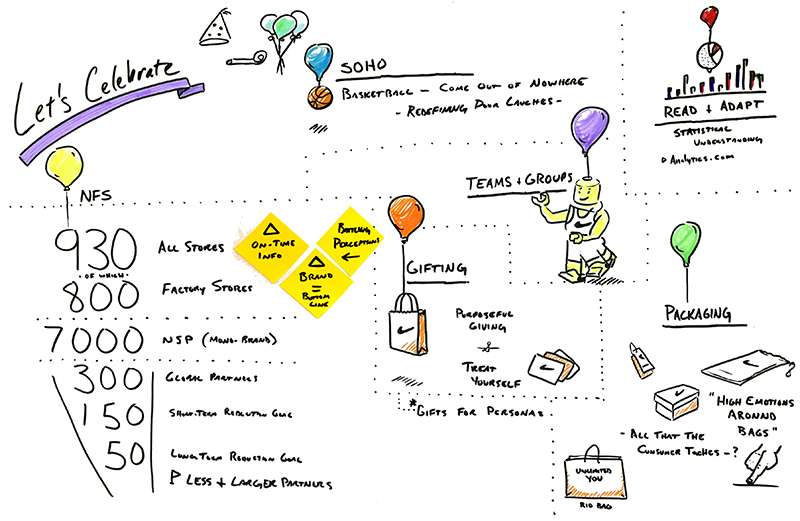 Let's Celebrate
NFS
930
OF WHICH
800
ALL STORES
FACTORY STORES
ON-TIME
INFO
BATTLING
PERCEPTIONS
BRAND
=
BOTTOM
LINE
7000
NSP (MONO-BRAND)
300
GLOBAL PARTNERS
150
SHORT-TERM REDUCTION GOAL
50
LONG TERM REDUCTION GOAL
LESS + LARGER PARTNERS
SOHO
BASKETBALL – COME OUT OF NOWHERE
- REDEFINING DOOR LAUCHES -
READ + ADAPT
STATISTICAL
UNDERSTANDING
ANALYTICS.COM
TEAMS + GROUPS
GIFTING
PURPOSEFUL
GIVING
TREAT
YOURSELF
*GIFTS FOR PERSONAS
PACKAGING
"HIGH EMOTIONS
AROUND
BAGS"
- ALL THAT THE
CONSUMER TOCHES - ?
UNLIMITED
YOU
RIO BAG